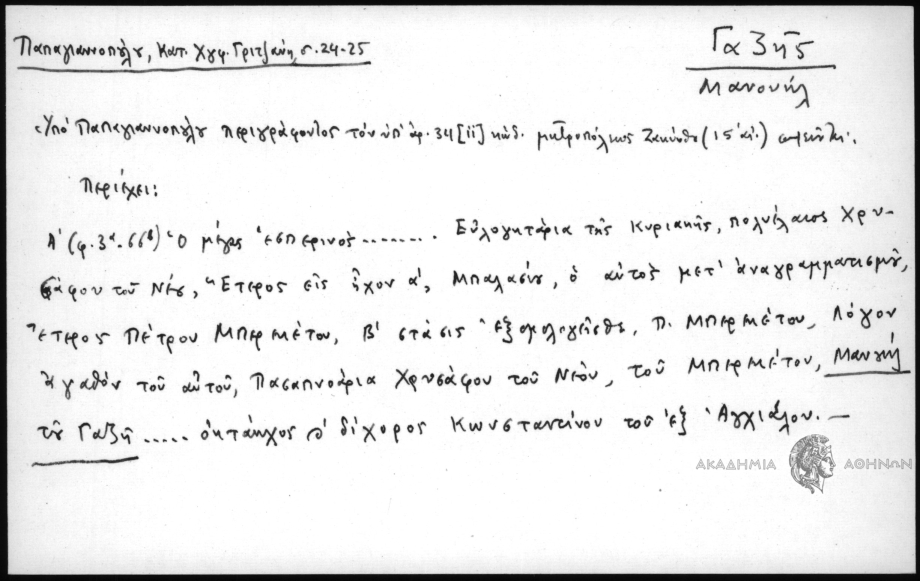 Παπαγιαννοπούλου, Κατ. Χγφ. Γριτζάνη, σ. 24-25
Γαζῆς
Μανουήλ
Ὑπὸ Παπαγιαννοπούλου περιγράφοντος τὸν ὑπ' ἀρ. 34 [ii] κώδ. μητροπόλεως Ζακύνθου (15 αἰ.)
Περιέχει:
Α' (φ. 3α-66β) Ὁ μέγας ἑσπερινὸς ....... . Εὐλογητάρια τῆς Κυριακῆς, πολυέλαιος Χρυ-
σάφου τοῦ Νέου, Ἕτερος εἰς ἦχον ά, Μπαλασίου, ὁ αὐτὸς μετ' ἀναγραμματισμοῦ,
Ἕτερος Πέτρου Μπερεκέτου, Β' στάσις Ἐξομολογεῖσθε, Π. Μπερεκέτου, Λόγον
ἀγαθὸν τοῦ αὐτοῦ, Πασαπνοάρια Χρυσάφου τοῦ Νέου, τοῦ Μπερεκέτου, Μανουὴλ
τοῦ Γαζῆ ..... ὀκτάηχος δίχορος Κωνσταντίνου τοῦ ἐξ Ἀγχιάλου. —
ΑΚΑΔΗΜΙΑ ΑΘΗΝΩΝ